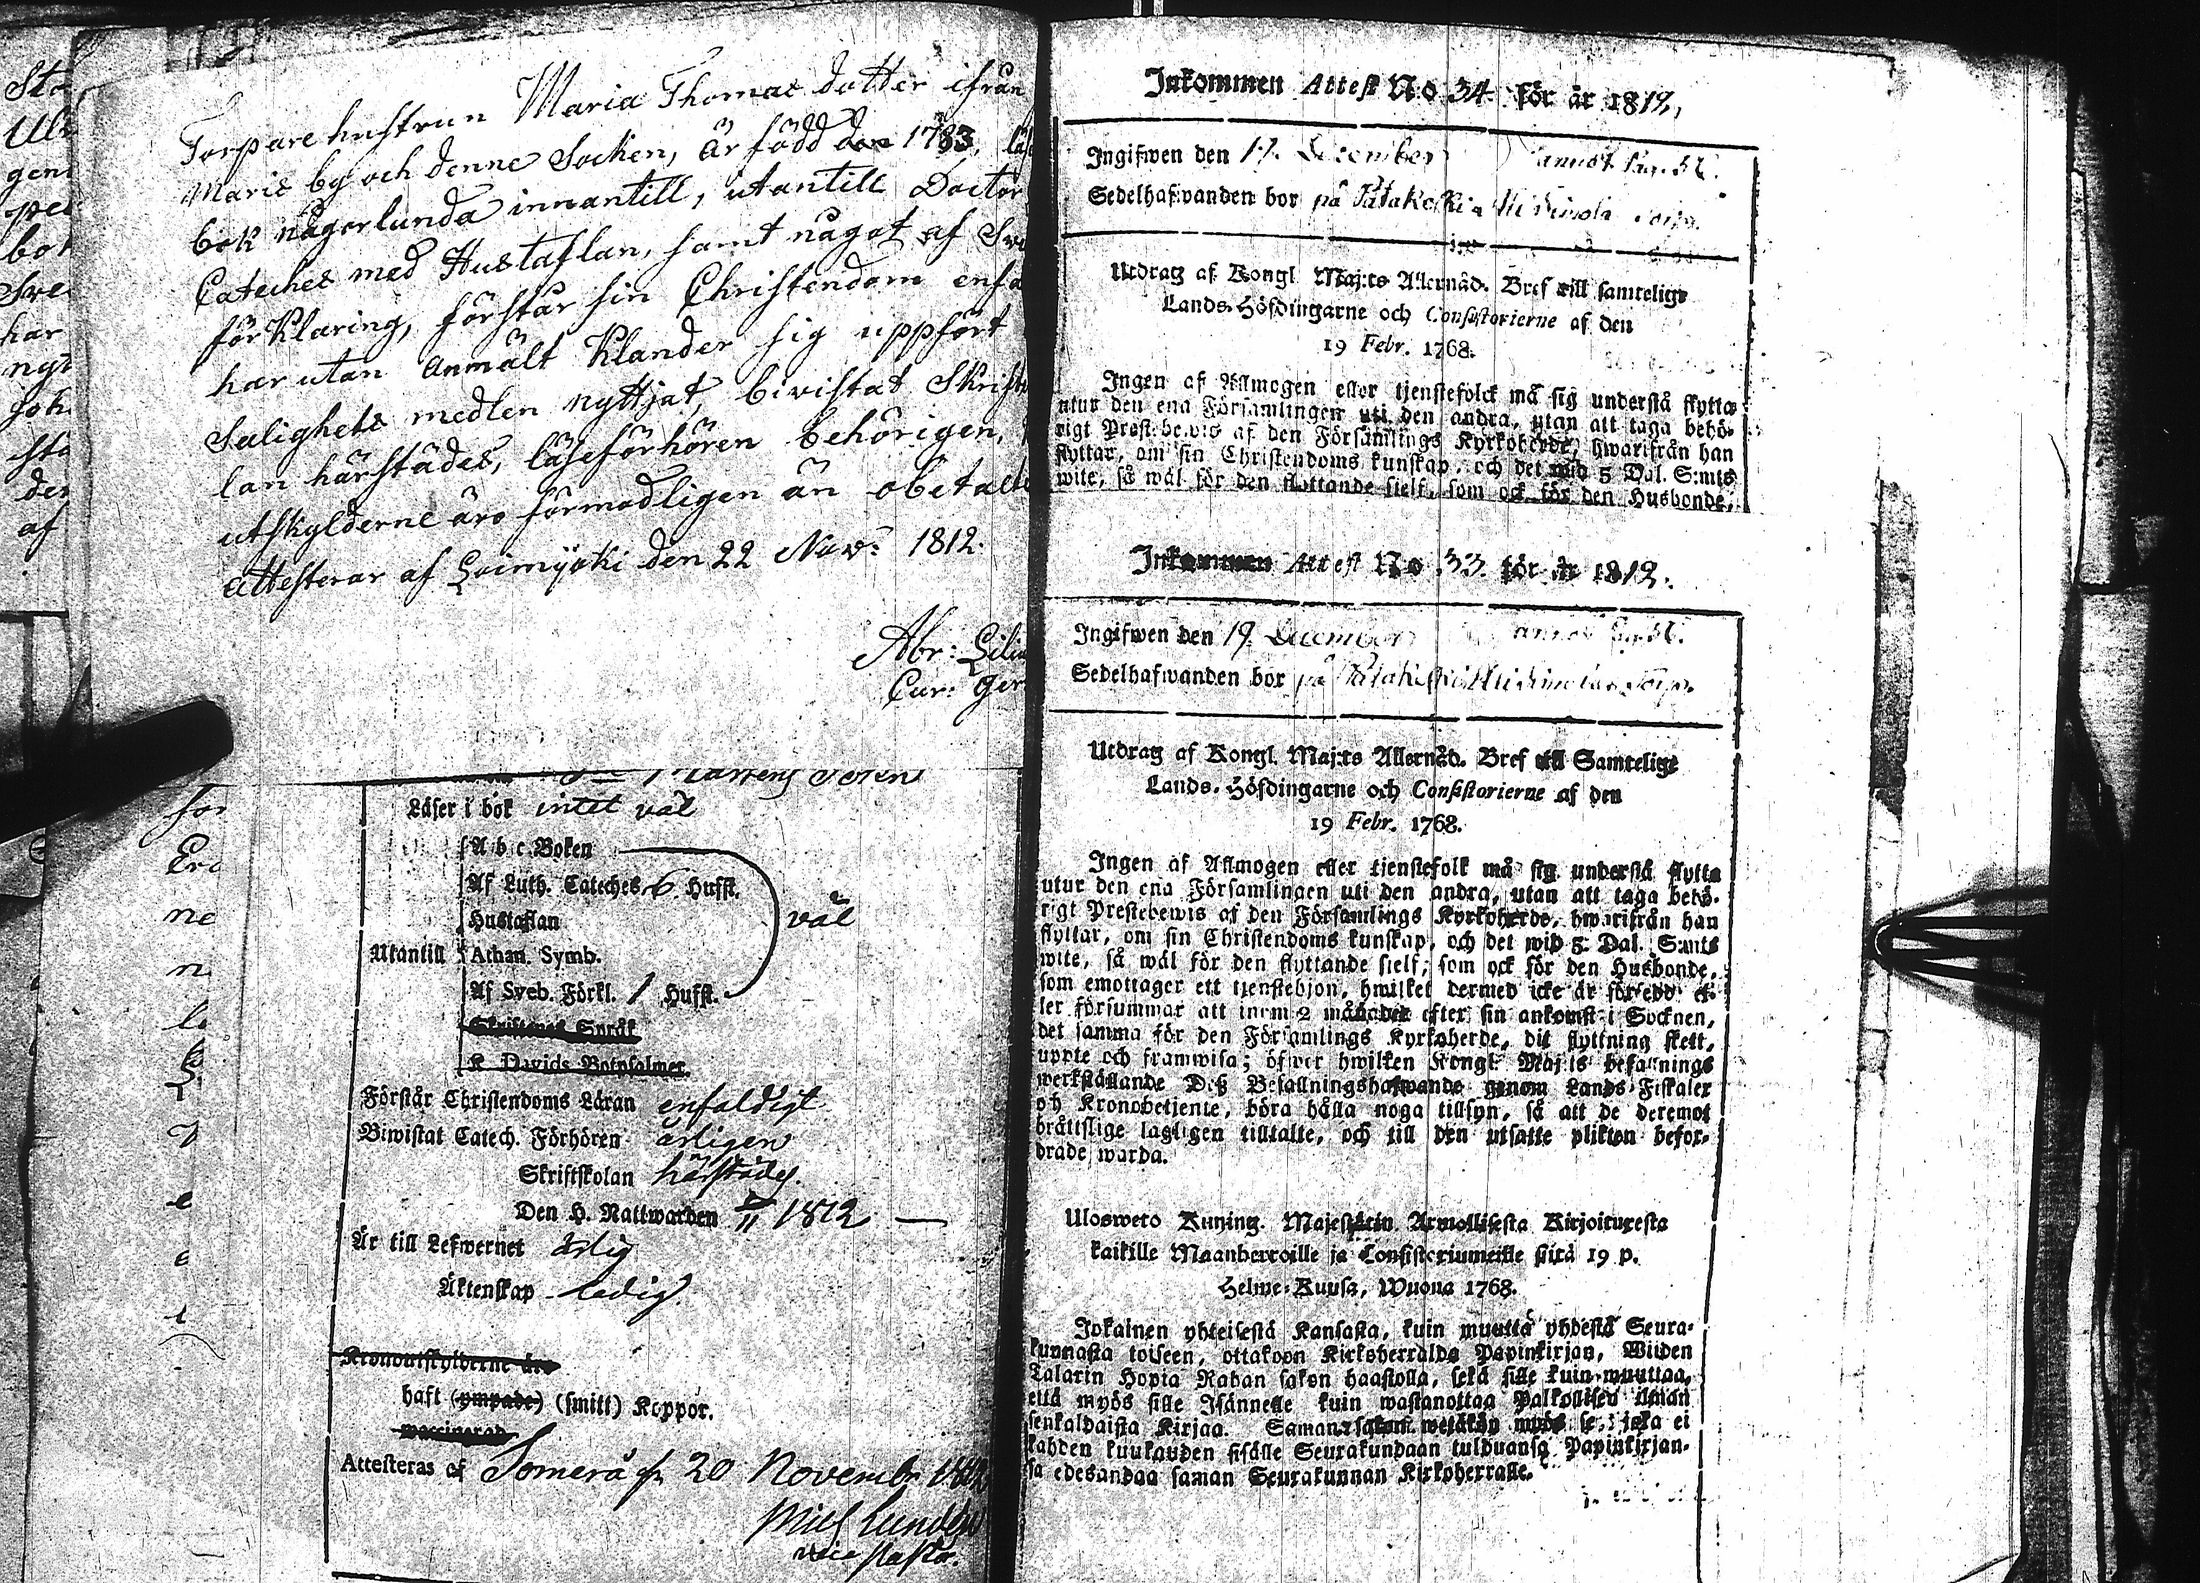 Torpare hustrun Maria Thomas dotter ifrån
Maris by och denne Socken, är född den 1783, läs
bok någorlunda innantill, utantill Doctor
Cateches med Hustaflan, samt något af Sve
förklaring, förstår sin Christendom enfa
har utan anmält klander sig uppfört
Salighets medlen nyttjat, bivistat Skrifts
lan härstädes, läseförhören behörigen,
utskylderne äro förmodligen än obetalte
attesterar af Loimijoki den 22 Nov: 1812.
Abr: Liliu
Cur: Ger
Läser i bok intet väl
A b c Boken
Af Luth. Cateches 6 Hufst.
Hustaflan
väl
Utantill
Athan. Symb.
Af Sveb. Förkl. 1 Hufst.
Skriftenes Språk
K. Davids Botpsalmer.
Förstår Christendoms Läran enfaldigt
Biwistat Catech. Förhören årligen
Skriftskolan härstädes.
Den H. Nattwarden 11 1812 —
Är till Lefwernet ärlig
Äktenskap ledig.
Kronoutskylderne äro
haft (ympade) (smitt) Koppor.
waccinerad
Attesteras af Somero 20 Novembr 1812
Mich Lundén
vice Pastor.
Inkommen Attest No 34. för år 1812,
Ingifwen den 17. December
Sedelhafwanden bor på
Utdrag af Kongl Maj:ts Allernåd. Bref till samtelige
Lands-Höfdingarne och Consistorierne af den
19 Febr. 1768.
Ingen af Allmogen eller tjenstefolck må sig understå flytta
utur den ena Församlingen uti den andra, utan att taga behö-
rigt Prestebewis af den Församlings Kyrkoherde, hwarifrån han
flyttar, om sin Christendoms kunskap, och det wid 5 Dal. S:mts
wite, så wäl för den flyttande sielf, som ock för den Husbonde,
Inkommen Attest No 33. för år 1812.
Ingifwen den 19. December
Sedelhafwanden bor på
Utdrag af Kongl. Maj:ts Allernåd. Bref till Samtelige
Lands-Höfdingarne och Consistorierne af den
19 Febr. 1768.
Ingen af Allmogen eller tjenstefolk må sig understå flytta
utur den ena Församlingen uti den andra, utan att taga behö-
rigt Prestebewis af den Församlings Kyrkoherde, hwarifrån han
flyttar, om sin Christendoms kunskap, och det wid 5 Dal. S:mts
wite, så wäl för den flyttande sielf, som ock för den Husbonde,
som emottager ett tjenstebjon, hwilket dermed icke är försedd el-
ler försummar att inom 2 månader efter sin ankomst i Socknen,
det samma för den Församlings Kyrkoherde, dit flyttning skett,
uppte och framwisa; öfwer hwilken Kongl. Maj:ts befallnings
werkställande Deß Befallningshafwande genom Lands-Fiskaler
och Kronobetjente, böra hålla noga tillsyn, så att de deremot
bråttslige lagligen tilltalte, och till den utsatte plikten befor-
drade warda.
Ulosweto Kuning. Majestätin Armollisesta Kirjoituxesta
kaikille Maanherroille ja Consistoriumeille siitä 19 p.
Helme-Kuusa, Wuona 1768.
Jokainen yhteisestä Kansasta, kuin muuttá yhdestä Seura-
kunnasta toiseen, ottakoon Kirkoherralda Papinkirjan, Wiiden
Talarin Hopia Rahan sakon haastolla, sekä sille kuin muuttaa,
että myös sille Isännelle kuin wastanottaa Palkollisen ilman
senkaldaista Kirjaa. Saman sakon wetäkön myös se, joka ei
kahden kuukauden sisälle Seurakundaan tulduansa Papinkirjan-
sa edesandaa saman Seurakunnan Kirkoherralle.